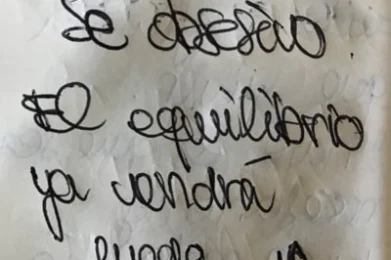 Se obsesivo.
El equilibrio
ya vendrá